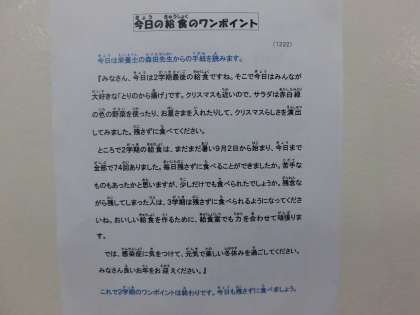 今日の給食のワンポイント
(1222)
今日は栄養士の森田先生からの手紙を読みます。
『みなさん、今日は2学期最後の給食ですね。そこで今日はみんなが
大好きな「とりのから揚げ」です。クリスマスも近いので、サラダは赤白緑
の色の野菜を使ったり、お星さまを入れたりして、クリスマスらしさを演出
してみました。残さずに食べてください。
ところで2学期の給食は、まだまだ暑い9月2日から始まり、今日まで
全部で74回ありました。毎日残さずに食べることができましたか。苦手な
ものもあったかと思いますが、少しだけでも食べられたでしょうか。残念な
がら残してしまった人は、3学期は残さずに食べられるようになってください
ね。おいしい給食を作るために、給食室でも力を合わせて頑張りま
す。
では、感染症に気をつけて、元気で楽しい冬休みを過ごしてください。
みなさん良いお年をお迎えください。』
これで2学期のワンポイントは終わりです。今日も残さずに食べましょう。